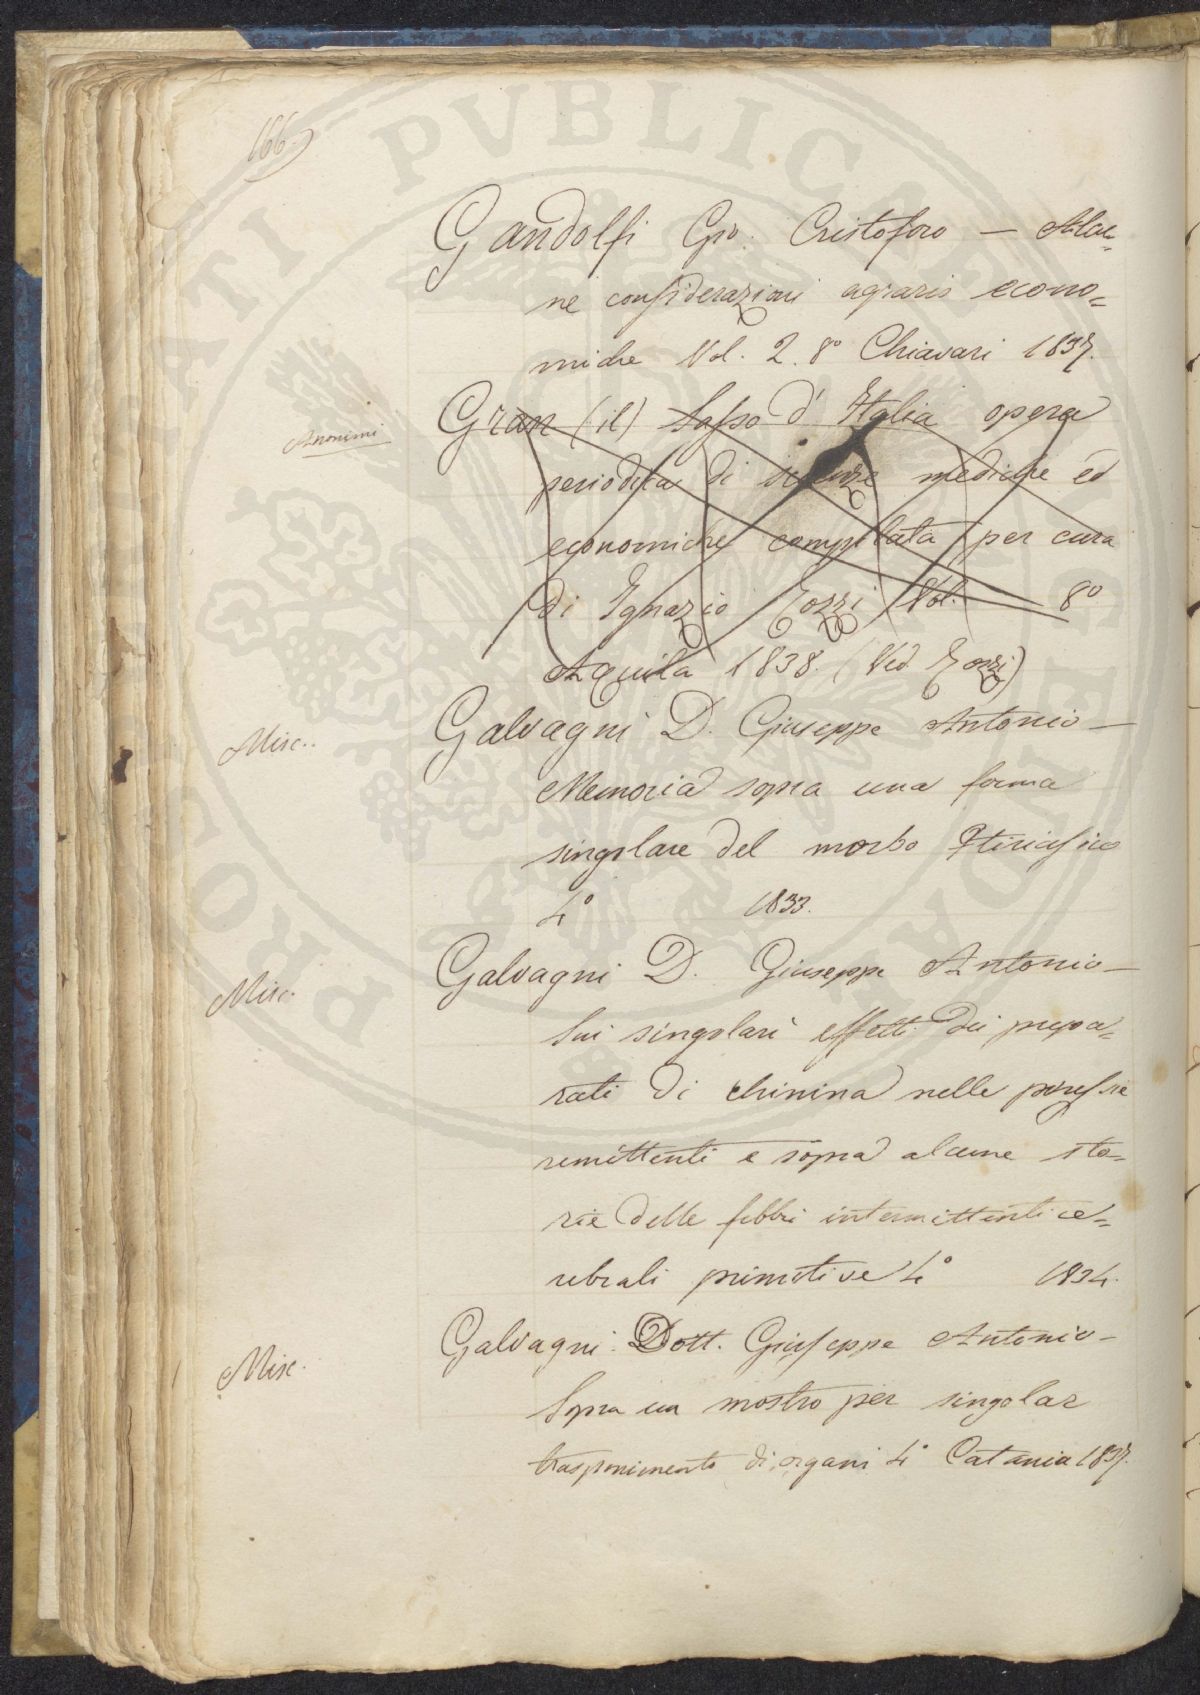 166.
Gandolfi Gio. Cristoforo — Alcu=
ne considerazioni agrario econo=
miche Vol. 2. 8° Chiavari 1837.
Anonimi
Gran (il) Sasso d' Italia opera
periodica di scienze mediche ed
economiche compilata per cura
di Ignazio Rozzi Vol. — 8°
Aquila 1838. (Ved. Rozzi)
Misc.
Galvagni D. Giuseppe Antonio —
Memoria sopra una forma
singolare del morbo
4° 1833.
Misc.
Galvagni D. Giuseppe Antonio —
Sui singolari effetti dei prepa=
rati di chinina nelle
remittenti e sopra alcune sto=
rie delle febbri intermittenti ce=
rebrali primitive 4° 1834.
Misc.
Galvagni Dott. Giuseppe Antonio —
Sopra un mostro per singolar
trasponimento di organi 4° Catania 1837.